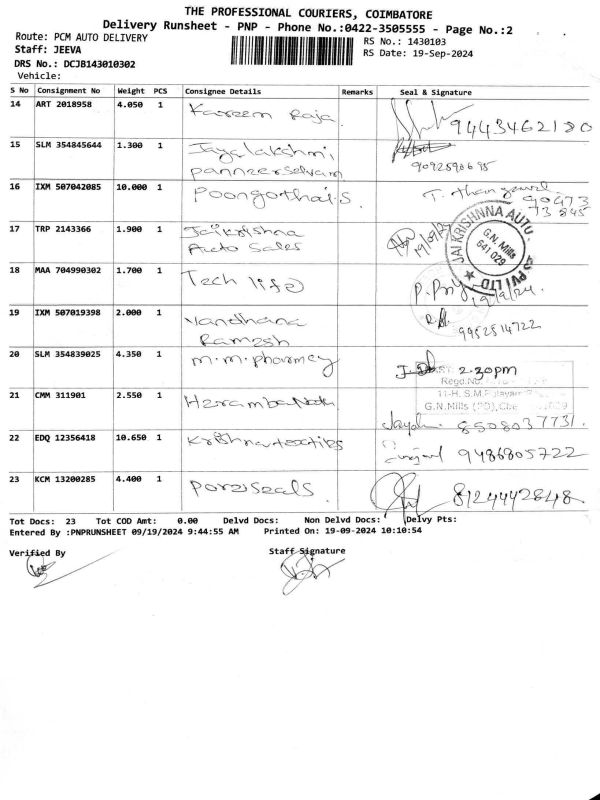 THE PROFESSIONAL COURIERS, COIMBATORE
Delivery Runsheet - PNP - Phone No.:0422-3505555 - Page No.:2
Route: PCM AUTO DELIVERY
RS No.: 1430103
Staff: JEEVA
RS Date: 19-Sep-2024
DRS No.: DCJB143010302
Vehicle:
S No Consignment No Weight PCS Consignee Details Remarks Seal & Signature
14 ART 2018958 4.050 1 Kareem Raja 9443462180
15 SLM 354845644 1.300 1 Jayalakshmi,
panneerselvam 9092590695
16 IXM 507042085 10.000 1 Poongothai.S T. 90473
73845
17 TRP 2143366 1.900 1 Jaikrishna
Auto Sales 19/09/24
JAI KRISHNNA AUTO PVT LTD
G.N. Mills
641 029
18 MAA 704990302 1.700 1 Tech life 19/9/24.
19 IXM 507019398 2.000 1 Vandhana
Ramesh 9952514722
20 SLM 354839025 4.350 1 m.m.pharmey 2.30pm
Regd.No.
11-H, S.M.Palayam
G.N.Mills (PO),Cbe
21 CMM 311901 2.550 1 8508037731.
22 EDQ 12356418 10.650 1 Krishna textiles 9486805722
23 KCM 13200285 4.400 1 8124442848
Tot Docs: 23 Tot COD Amt: 0.00 Delvd Docs: Non Delvd Docs: Delvy Pts:
Entered By :PNPRUNSHEET 09/19/2024 9:44:55 AM Printed On: 19-09-2024 10:10:54
Verified By Staff Signature